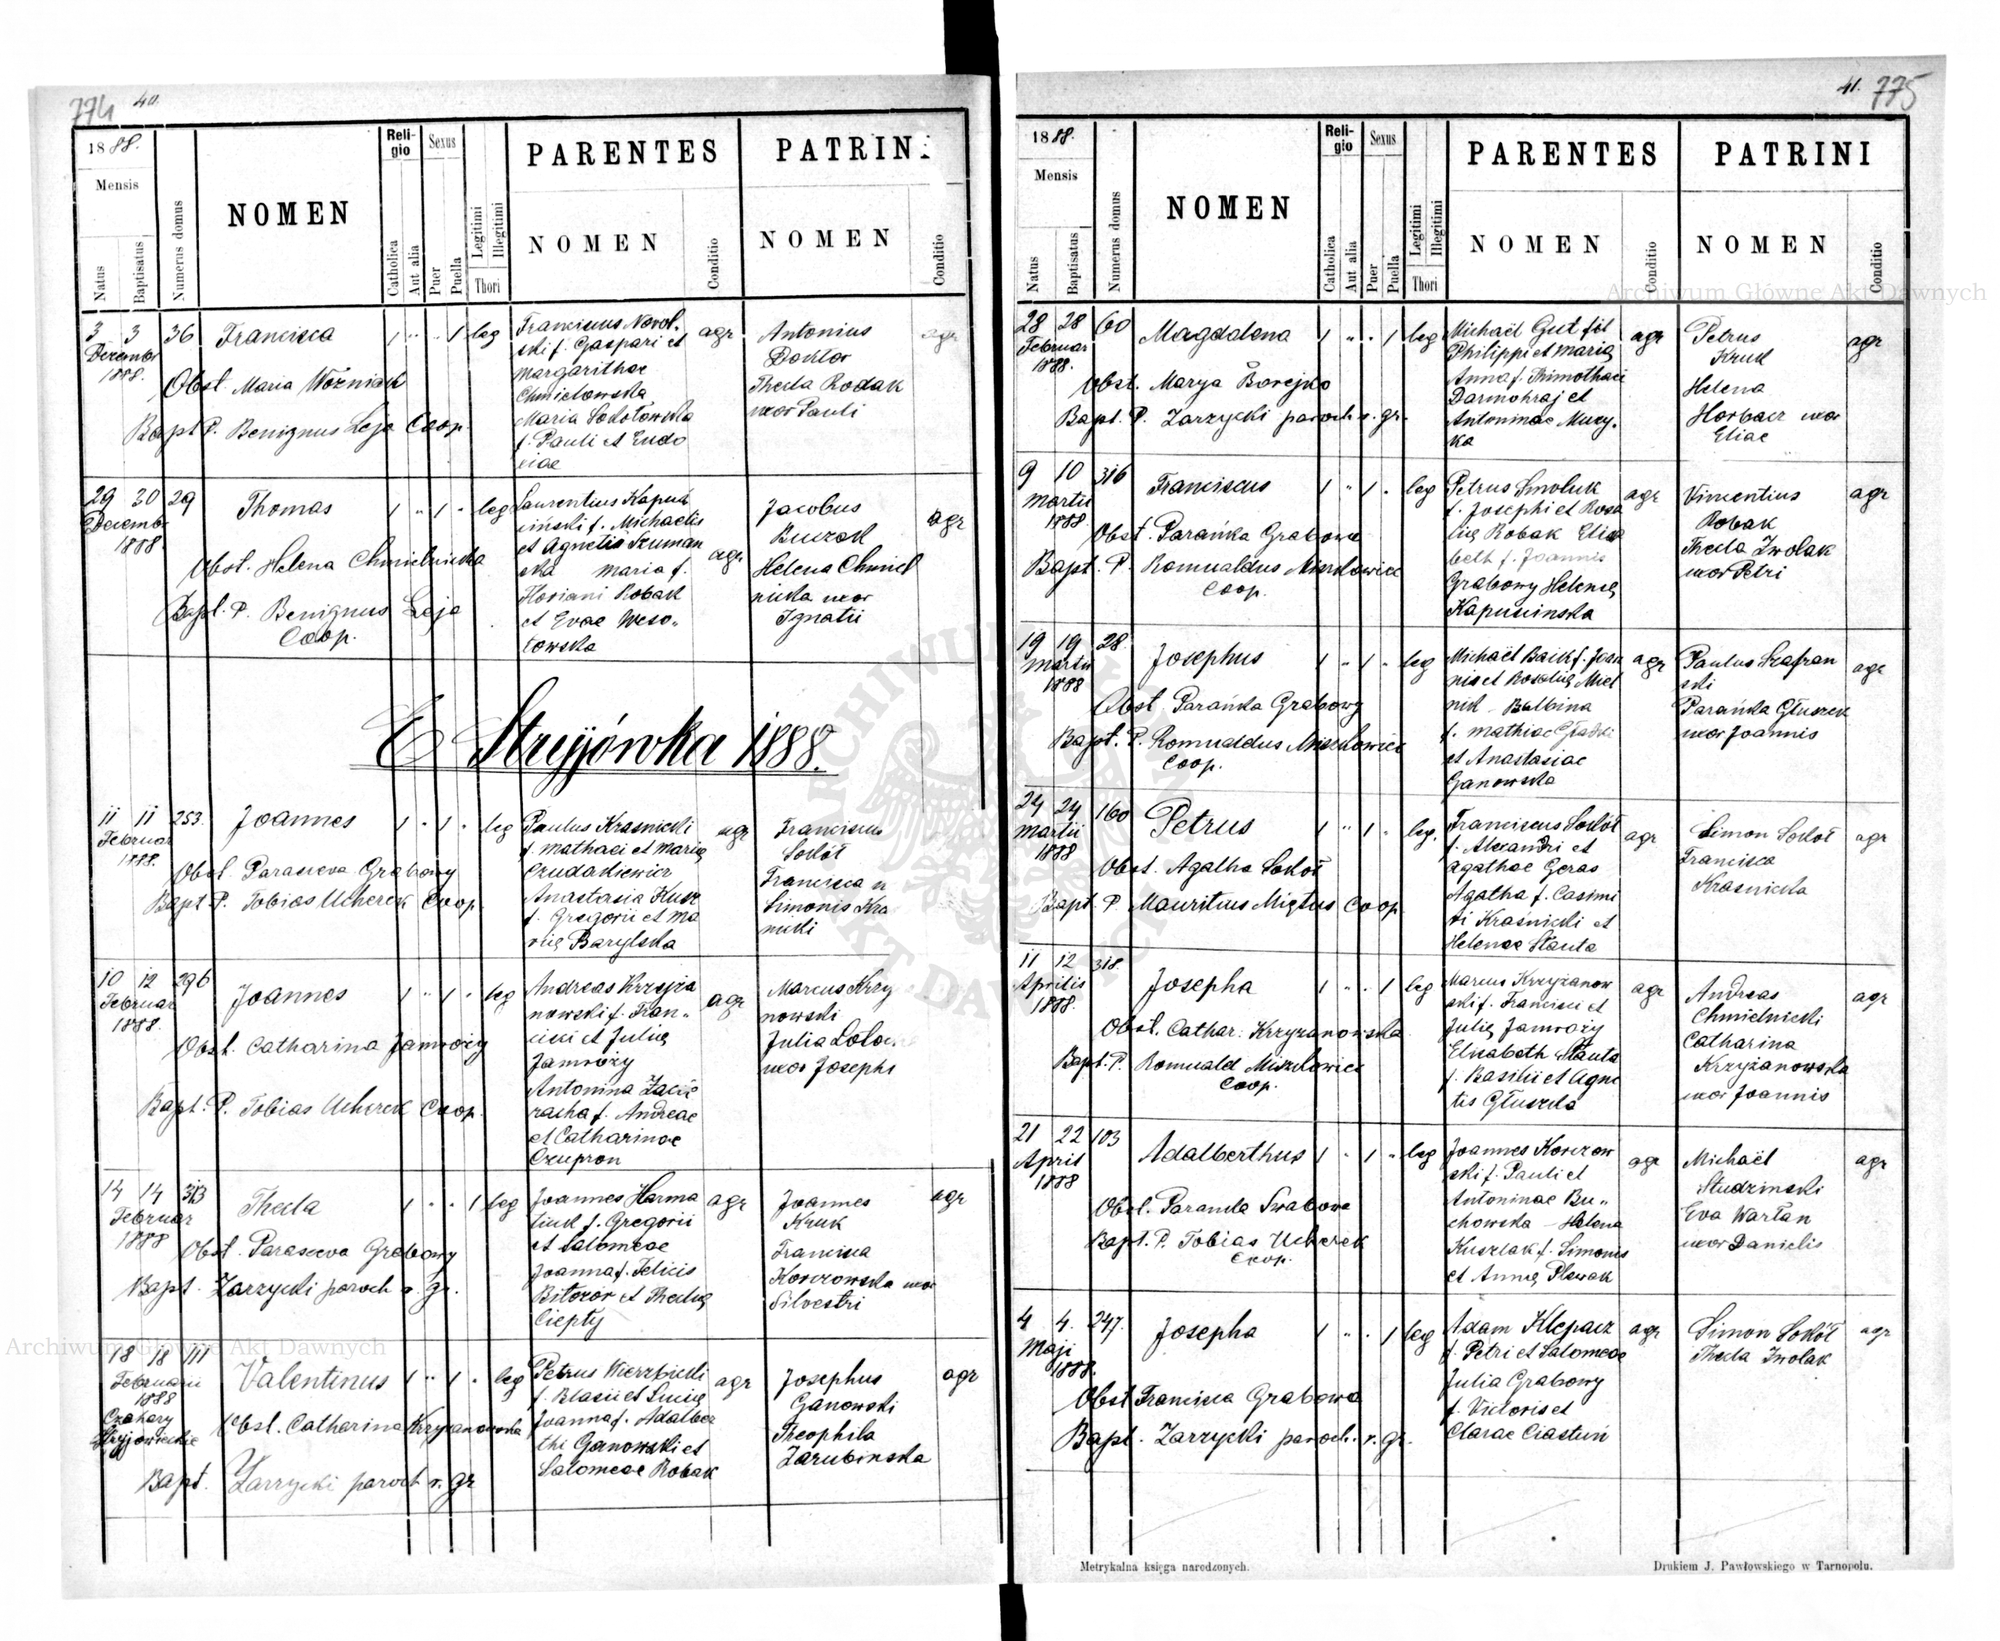 774 40.
1888.
Mensis
Natus
Baptisatus
Numerus domus
NOMEN
Religio
Catholica
Aut alia
Sexus
Puer
Puella
Legitimi
Illegitimi
Thori
PARENTES
NOMEN
Conditio
PATRINI
NOMEN
Conditio
3 3 36 Francisca 1 " " 1 leg
Decembr
1888.
Obst. Maria Woźniak
Bapt P. Benignus Leja Coop.
Franciscus Nowol-
ski f. Gaspari et
Margarithae
Chmielowska
Maria Sokołowska
f. Pauli et Eudo
xiae
agr
Antonius
Doktor
Thecla Rodak
uxor Pauli
agr
29 30 29 Thomas 1 " 1 " leg
Decembr
1888.
Obst. Helena Chmielnicka
Bapt. P. Benignus Leja
Coop.
Laurentius Kapuś
ciński f. Michaelis
et Agnetis Szuman
ska Maria f.
Floriani Robak
et Evae Weso-
łowska
agr
Jacobus
Buczak
Helena Chmiel
nicka uxor
Ignatii
agr
E Stryjówka 1888.
11 11 253. Joannes 1 " 1 " leg
Februar
1888.
Obst. Parasceva Grabowy
Bapt P. Tobias Ucherek Coop.
Paulus Kraśnicki
f. Mathaei et Mariae
Czudakiewicz
Anastasia Kusz
f. Gregorii et Ma
riae Barylska
agr
Franciscus
Sokół
Francisca u
Simonis Kra
nicki
10 12 296 Joannes 1 " 1 " leg
Februar
1888.
Obst. Catharina Jamroży
Bapt. P. Tobias Ucherek Coop.
Andreas Krzyża
nowski f. Fran-
cisci et Julia
Jamroży
Antonina
f. Andreae
et Catharinae
Czupron
agr
Marcus Krzy
nowski
Julia
uxor Josephi
14 14 313 Thecla 1 " " 1 leg
Februar
1888
Obst. Parasceva Grabowy
Bapt. Zarzycki paroch r. gr.
Joannes Harma
tiuk f. Gregorii
et Salomeae
Joanna f. Felicis
Bitozor et Theclae
Ciepły
agr
Joannes
Kruk
Francisca
Korczowska uxor
Silvestri
agr
18 18 111 Valentinus 1 " 1 " leg
Februarii
1888
Czahary
Stryjowieckie
Obst. Catharina Krzyzanowska
Bapt. Zarzycki paroch r. gr
Petrus Wierzbicki
f. Blasii et Luciae
Joanna f. Adalber
thi Ganowski et
Salomeae Robak
agr
Josephus
Ganowski
Theophila
Zarubinska
agr
41. 775
1888.
Mensis
Natus
Baptisatus
Numerus domus
NOMEN
Religio
Catholica
Aut alia
Sexus
Puer
Puella
Legitimi
Illegitimi
Thori
PARENTES
NOMEN
Conditio
PATRINI
NOMEN
Conditio
28 28 60 Magdalena 1 " " 1 leg
Februar
1888.
Obst. Marya Borejko
Bapt. P. Zarzycki paroch r. gr.
Michaël Gut fil
Philippi et Mariae
Anna f. Thimothaei
Darmohraj et
Antoninae Muzy-
ka
agr
Petrus
Kruk
Helena
Horbacz uxor
Eliae
agr
9 10 316 Franciscus 1 " 1 " leg
Martii
1888
Obst. Parańka Grabowa
Bapt. P. Romualdus Miszkowicz
Coop.
Petrus Smoluk
f. Josephi et Rosa
liae Robak Elisa
beth f. Joannis
Grabowy Helenae
Kapuscinska
agr
Vincentius
Robak
Thecla Zwolak
uxor Petri
agr
19 19 28. Josephus 1 " 1 " leg
Martii
1888
Obst. Parańka Grabowy
Bapt. P. Romualdus Miszkowicz
Coop.
Michaël Baik f. Joan
nis et Rosaliae Miel
nik - Balbina
f. Mathiae Gładki
et Anastasiae
Ganowska
agr
Paulus Szafran
ski
Parańka Głuszek
uxor Joannis
agr
24 24 160 Petrus 1 " 1 " leg.
Martii
1888
Obst. Agatha Sokoł
Bapt. P. Mauritius Miętus Coop.
Franciscus Sokół
f. Alexandri et
Agathae Geras
Agatha f. Casimi
ri Kraśnicki et
Helenae Stauta
agr
Simon Sokoł
Francisca
Krasnicka
agr
11 12 318. Josepha 1 " " 1 leg
Aprilis
1888.
Obst. Cathar. Krzyzanowska
Bapt. P. Romuald Miszkowicz
Coop.
Marcus Krzyżanow
ski f. Francisci et
Julia Jamroży
Elisabeth Stauta
f. Basilii et Agne
tis Głuszek
agr
Andreas
Chmielnicki
Catharina
Krzyżanowska
uxor Joannis
agr
21 22 103 Adalberthus 1 " 1 " leg
April
1888
Obst. Paranka Grabowa
Bapt. P. Tobias Ucherek
Coop.
Joannes Korczow
ski f. Pauli et
Antoninae Bu-
chowska - Helena
Kuszlak f. Simonis
et Annae Plewak
agr
Michaël
Studzinski
Eva Warłan
uxor Danielis
agr
4 4. 247. Josepha 1 " " 1 leg
Maji
1888.
Obst Francisca Grabowa
Bapt. Zarzycki paroch. r. gr.
Adam Klepacz
f. Petri et Salomeae
Julia Grabowy
f. Victoris et
Clarae Ciastuń
agr
Simon Sokół
Thecla Zwolak
agr
Metrykalna księga narodzonych.
Drukiem J. Pawłowskiego w Tarnopolu.
Archiwum Główne Akt Dawnych
Archiwum Główne Akt Dawnych